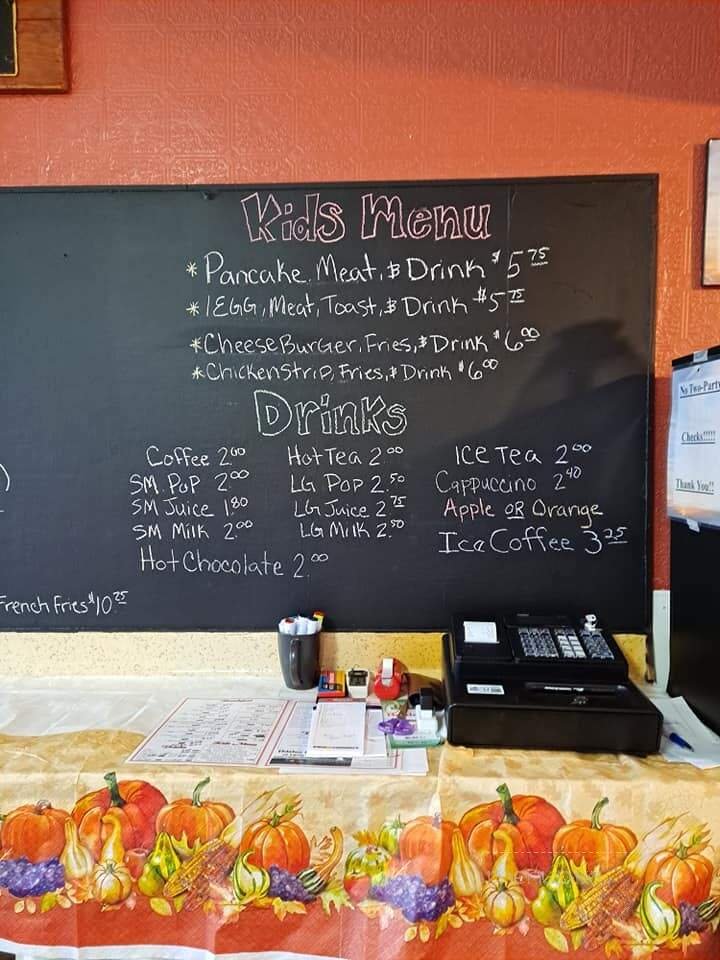 Kids Menu
* Pancake, Meat, & Drink $5 75
* 1 EGG, Meat, Toast, & Drink $5 75
* Cheese Burger, Fries, & Drink $6 00
* Chicken Strip, Fries, & Drink $6 00
Drinks
Coffee 2 00 Hot Tea 2 00 ICE Tea 2 00
SM. Pop 2 00 LG Pop 2.50 Cappuccino 2 40
SM Juice 1 80 LG Juice 2 75 Apple OR Orange
SM Milk 2 00 LG Milk 2.50 Ice Coffee 3 25
Hot Chocolate 2.00
French Fries $10.25
No Two-Party
Checks!!!!!
Thank You!!